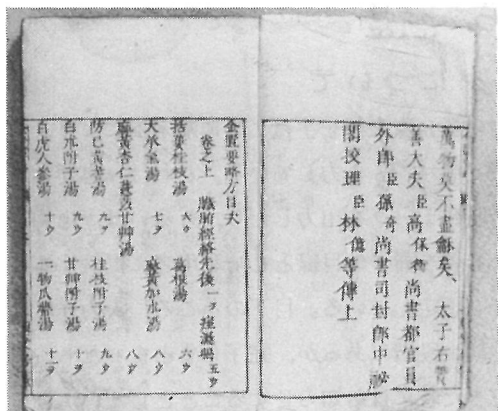 萬物矣不盡龢矣、太子右贊
善大夫臣高保衡尚書都官員
外郎臣孫奇尚書司封郎中秘
閣校理臣林億等傳上
金匱要略方目次
卷之上 臟腑經絡先後一ヲ 痙濕暍五ウ
栝蔞桂枝湯六ウ 葛根湯六ウ
大承氣湯七ヲ 麻黄加朮湯八ウ
麻黄杏仁薏苡甘艸湯八ウ
防已黄芪湯九ヲ 桂枝附子湯九ウ
白朮附子湯九ウ 甘艸附子湯十ヲ
白虎人參湯十ウ 一物瓜蒂湯十一ヲ